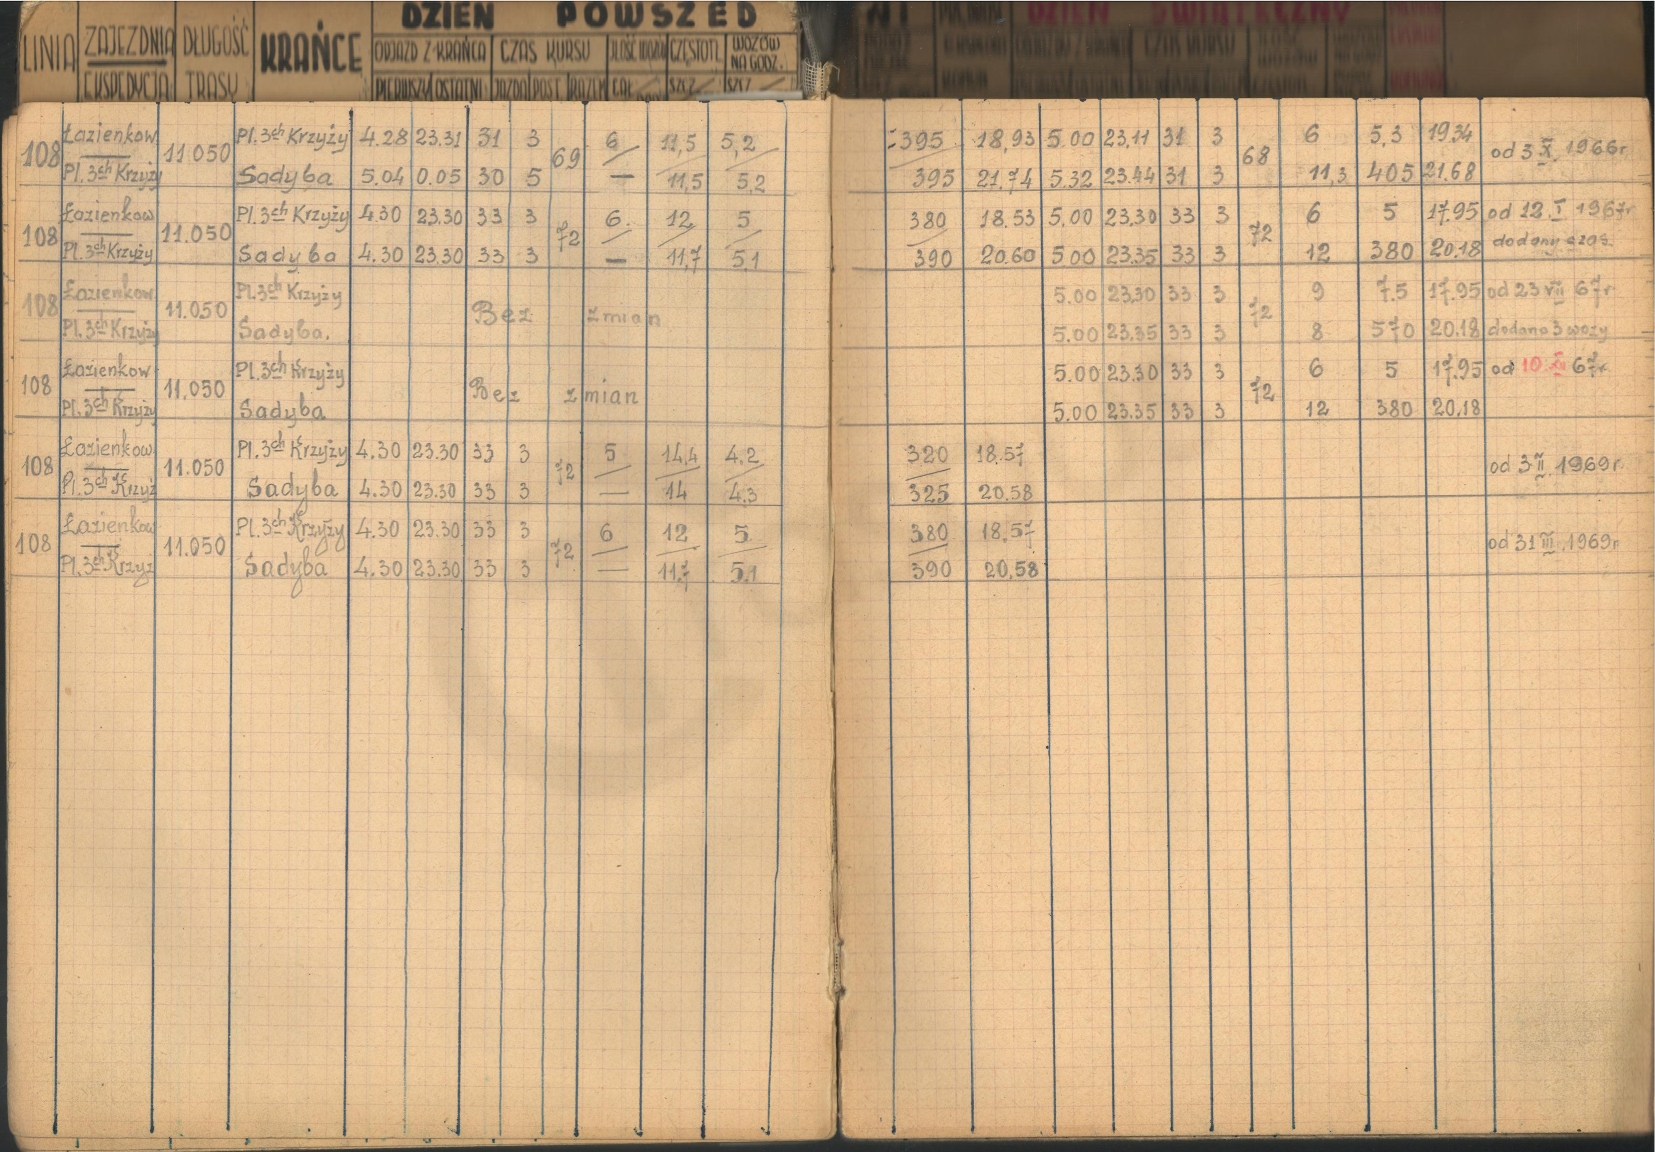 DZIEŃ POWSZED
LINIA ZAJEZDNIA DŁUGOŚĆ KRAŃCE ODJAZD Z KRAŃCA CZAS KURSU ILOŚĆ CZĘSTOTL. WOZÓW NA GODZ.
EKSPEDYCJA TRASY PIERWSZY OSTATNI JAZDA POST. RAZEM
DZIEŃ ŚWIĄTECZNY
108 Łazienkow 11.050 Pl.3ch Krzyży 4.28 23.31 31 3 69 6 11,5 5,2 395 18,93 5.00 23.11 31 3 68 6 5,3 19.34 od 3 X. 1966r.
Pl.3ch Krzyży Sadyba 5.04 0.05 30 5 — 11,5 5,2 395 21.74 5.32 23.44 31 3 11,3 405 21.68
108 Łazienkow 11.050 Pl.3ch Krzyży 4.30 23.30 33 3 72 6 12 5 380 18.53 5.00 23.30 33 3 72 6 5 17.95 od 12.I 1967r
Pl.3ch Krzyży Sadyba 4.30 23.30 33 3 — 11,7 5,1 390 20.60 5.00 23.35 33 3 12 380 20.18 dodany czas
108 Łazienkow 11.050 Pl.3ch Krzyży Bez zmian 5.00 23.30 33 3 72 9 7.5 17.95 od 23 VII 67r.
Pl.3ch Krzyży Sadyba. 5.00 23.35 33 3 8 570 20.18 dodano 3 wozy
108 Łazienkow 11,050 Pl.3ch Krzyży Bez zmian 5.00 23.30 33 3 72 6 5 17.95 od 10 67r.
Pl.3ch Krzyży Sadyba 5.00 23.35 33 3 12 380 20.18
108 Łazienkow 11.050 Pl.3ch Krzyży 4.30 23.30 33 3 72 5 14,4 4,2 320 18.57 od 3 II 1969r.
Pl.3ch Krzyż Sadyba 4.30 23.30 33 3 — 14 4,3 325 20.58
108 Łazienkow 11.050 Pl.3ch Krzyży 4.30 23.30 33 3 72 6 12 5 380 18,57 od 31 III 1969r.
Pl.3ch Krzyż Sadyba 4.30 23.30 33 3 — 11,7 5,1 390 20,58